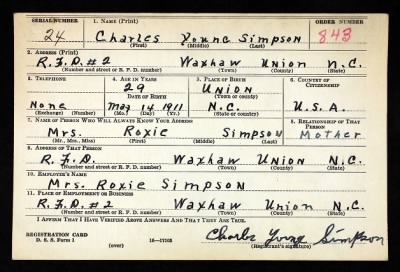 SERIAL NUMBER 1. NAME (Print) ORDER NUMBER
24 Charles Young Simpson 843
(First) (Middle) (Last)
2. ADDRESS (Print)
R.F.D. #2 Waxhaw Union N.C.
(Number and street or R. F. D. number) (Town) (County) (State)
3. TELEPHONE 4. AGE IN YEARS 5. PLACE OF BIRTH 6. COUNTRY OF CITIZENSHIP
29 Union
DATE OF BIRTH (Town or county)
None May 14 1911 N.C. U.S.A.
(Exchange) (Number) (Mo.) (Day) (Yr.) (State or country)
7. NAME OF PERSON WHO WILL ALWAYS KNOW YOUR ADDRESS 8. RELATIONSHIP OF THAT PERSON
Mrs. Roxie Simpson Mother
(Mr., Mrs., Miss) (First) (Middle) (Last)
9. ADDRESS OF THAT PERSON
R.F.D. Waxhaw Union N.C.
(Number and street or R. F. D. number) (Town) (County) (State)
10. EMPLOYER'S NAME
Mrs. Roxie Simpson
11. PLACE OF EMPLOYMENT OR BUSINESS
R.F.D. #2 Waxhaw Union N.C.
(Number and street or R. F. D. number) (Town) (County) (State)
I AFFIRM THAT I HAVE VERIFIED ABOVE ANSWERS AND THAT THEY ARE TRUE.
REGISTRATION CARD Charles Young Simpson
D. S. S. Form 1 (over) 16—17105 (Registrant's signature)